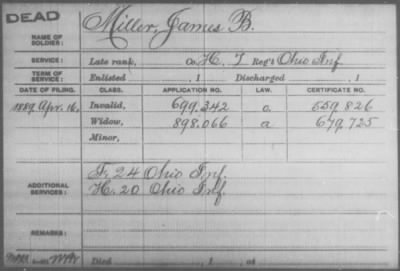 DEAD
NAME OF SOLDIER: Miller, James B.
SERVICE: Late rank, Co. H. 7 Reg't Ohio Inf.
TERM OF SERVICE: Enlisted , 1 Discharged , 1
DATE OF FILING. CLASS. APPLICATION NO. LAW. CERTIFICATE NO.
1889 Apr. 16, Invalid, 699.342 559.826
Widow, 898.066 a 679.725
Minor,
ADDITIONAL SERVICES: F. 24 Ohio Inf.
H. 20 Ohio Inf.
REMARKS:
Died , 1 , at